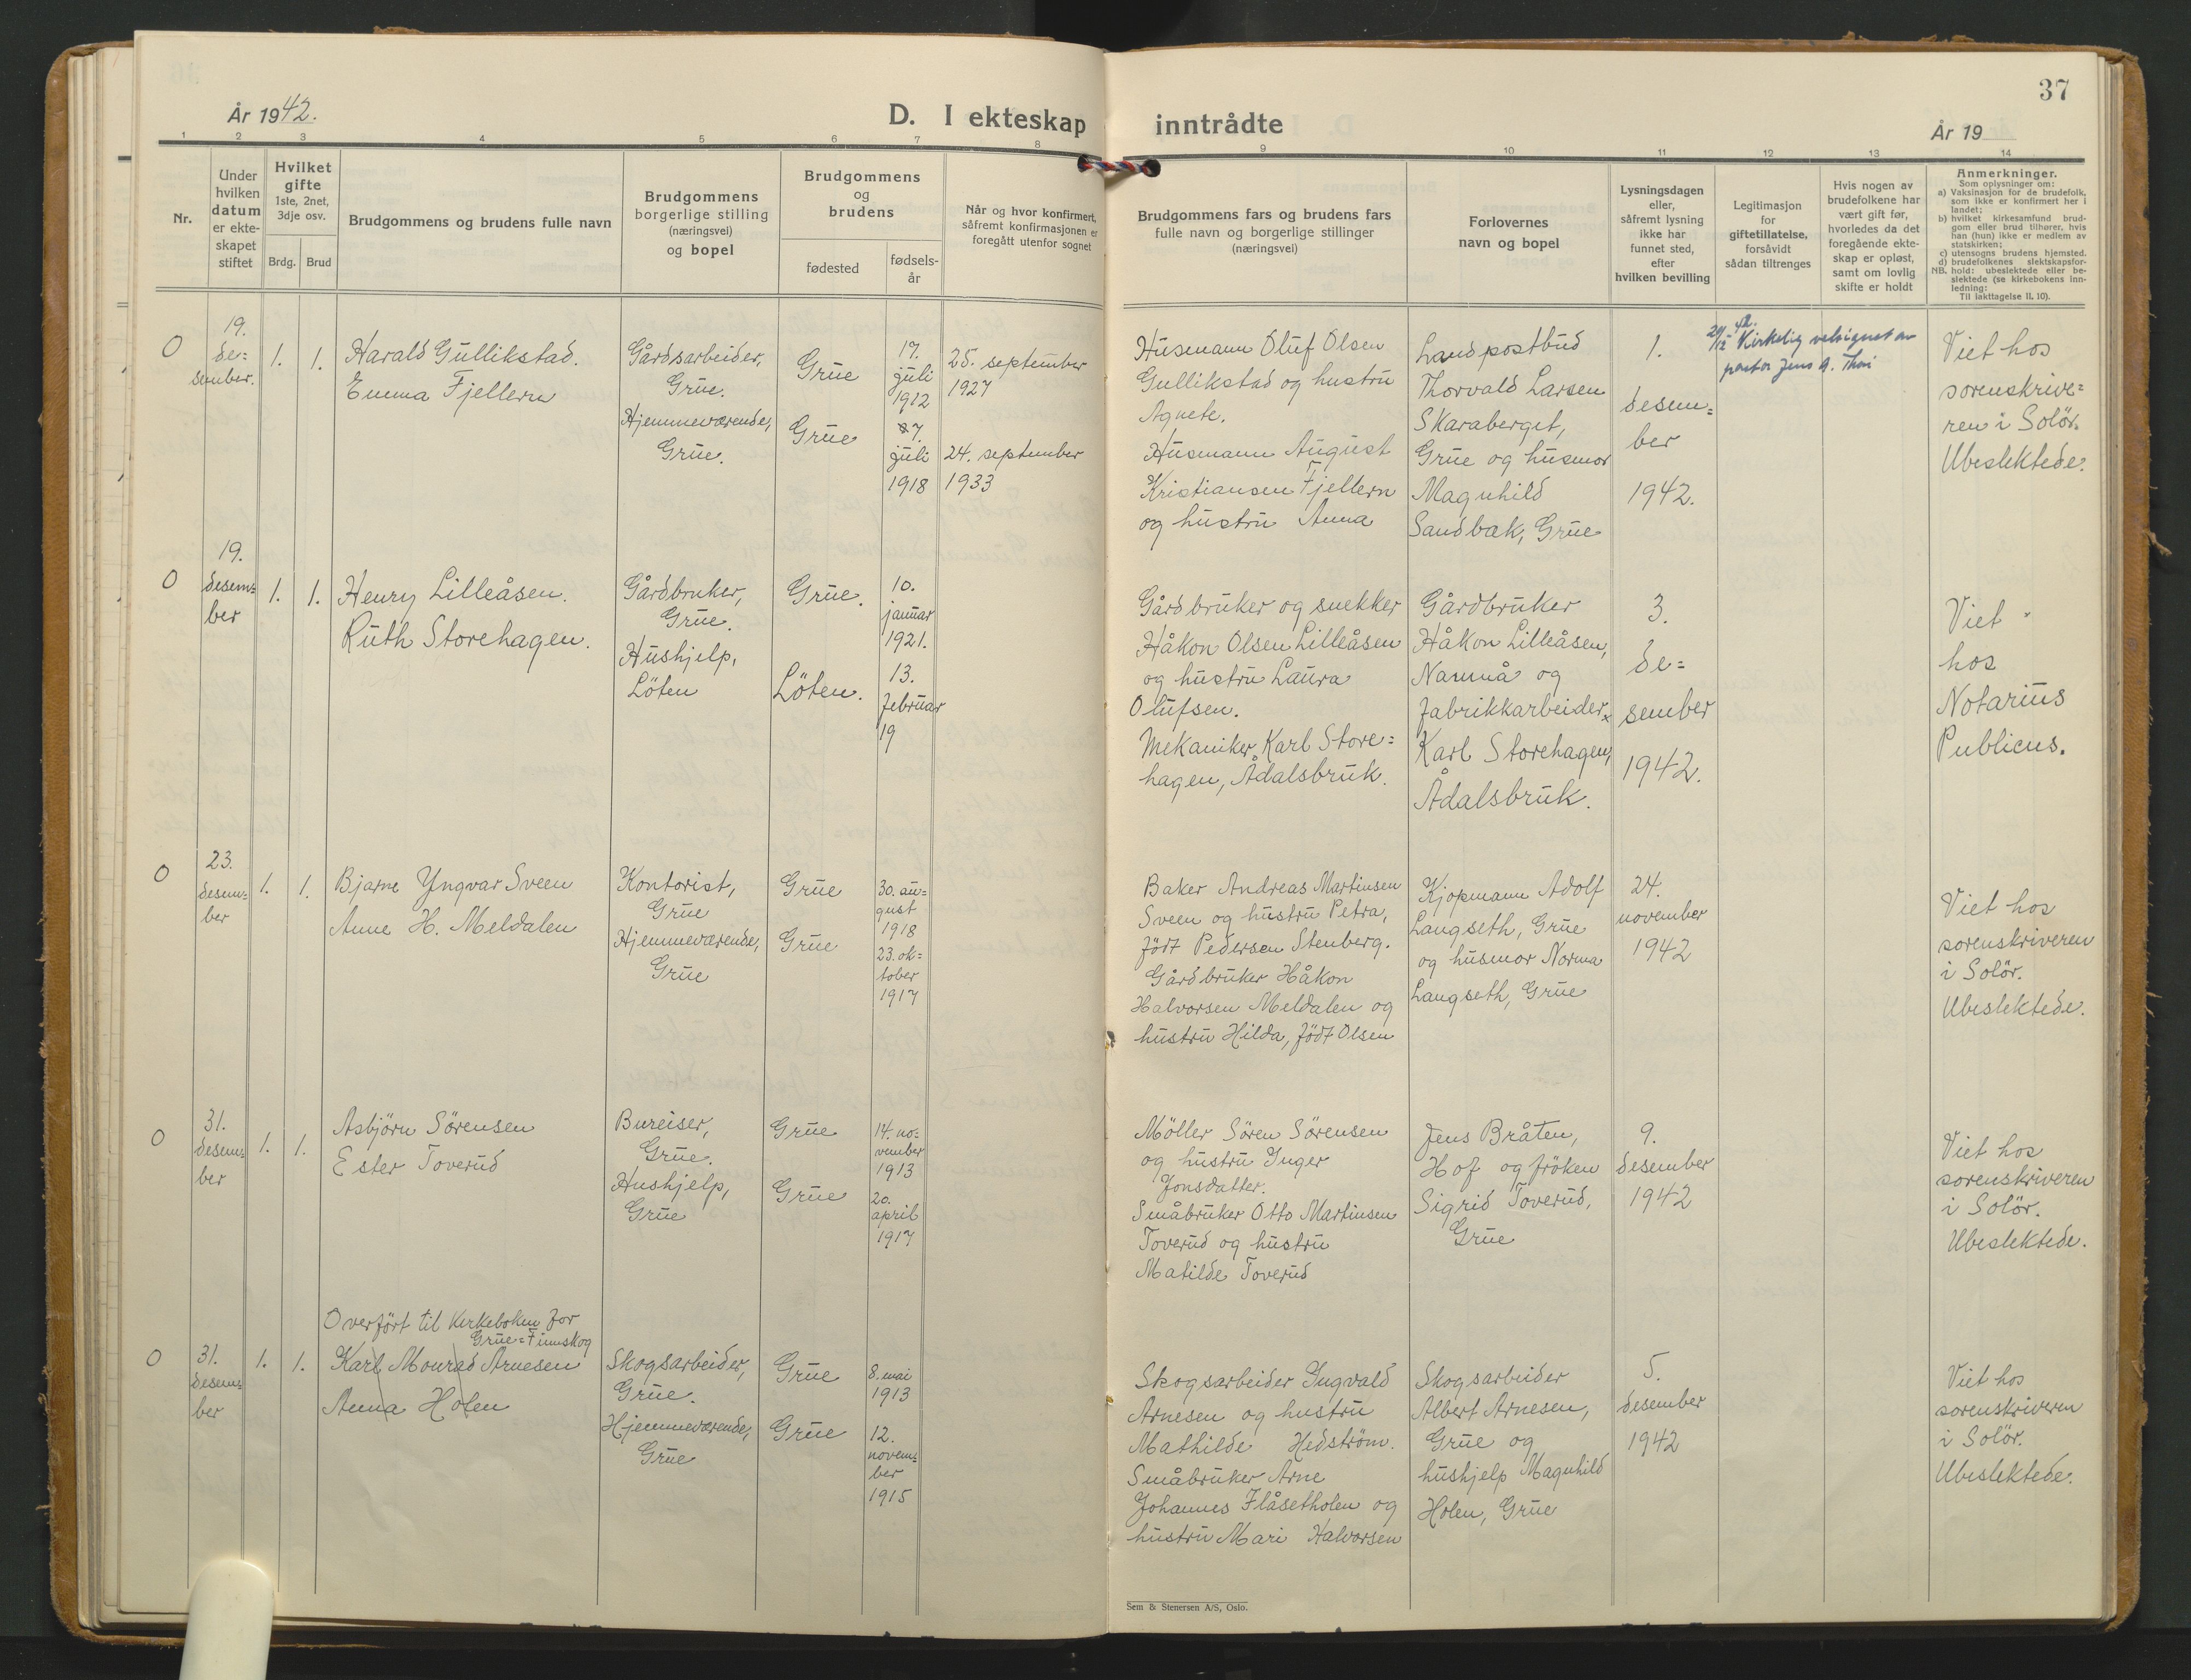 37
År 1942.
D. I ekteskap inntrådte
År 19
1 2 3 4 5 6 7 8 9 10 11 12 13 14
Nr.
Under
hvilken
datum
er ekte-
skapet
stiftet
Hvilket
gifte
1ste, 2net,
3dje osv.
Brdg. Brud
Brudgommens og brudens fulle navn
Brudgommens
borgerlige stilling
(næringsvei)
og bopel
Brudgommens
og
brudens
fødested
fødsels-
år
Når og hvor konfirmert,
såfremt konfirmasjonen er
foregått utenfor sognet
Brudgommens fars og brudens fars
fulle navn og borgerlige stillinger
(næringsvei)
Forlovernes
navn og bopel
Lysningsdagen
eller,
såfremt lysning
ikke har
funnet sted,
efter
hvilken bevilling
Legitimasjon
for
giftetillatelse,
forsåvidt
sådan tiltrenges
Hvis nogen av
brudefolkene har
vært gift før,
hvorledes da det
foregående ekte-
skap er opløst,
samt om lovlig
skifte er holdt
Anmerkninger.
Som oplysninger om:
a) Vaksinasjon for de brudefolk,
som ikke er konfirmert her i
landet;
b) hvilket kirkesamfund brud-
gom eller brud tilhører, hvis
han (hun) ikke er medlem av
statskirken;
c) utensogns brudens hjemsted.
d) brudefolkenes slektskapsfor-
NB. hold: ubeslektede eller be-
slektede (se kirkebokens inn-
ledning:
Til iakttagelse II, 10).
O
19.
de=
sember.
1. 1.
Harald Gullikstad.
Emma Fjellern
Gårdsarbeider,
Grue.
Hjemmeværende,
Grue.
Grue
Grue
17.
juli
1912
7.
juli
1918
25. september
1927
24. september
1933
Husmann Oluf Olsen
Gullikstad og hustru
Agnete.
Husmann August
Kristiansen Fjellern
og hustru Anna
Landpostbud
Thorvald Larsen
Skaraberget,
Grue og husmor
Magnhild
Sandbæk, Grue
1.
desem=
ber
1942.
20/12 42.
Kirkelig velsignet av
pastor Jens A.
Viet hos
sorenskrive=
ren i Solör.
Ubeslektede.
O
19.
desem=
ber
1. 1.
Henry Lilleåsen.
Ruth Storehagen.
Gårdbruker,
Grue.
Hushjelp,
Löten
Grue.
Löten.
10.
januar
1921.
13.
februar
19
Gårdbruker og snekker
Håkon Olsen Lilleåsen
og hustru Laura
Olufsen.
Mekaniker Karl Store=
hagen, Ådalsbruk.
Gårdbruker
Håkon Lilleåsen,
Namnå og
fabrikkarbeider
Karl Storehagen,
Ådalsbruk.
3.
de=
sember
1942.
Viet
hos
Notarius
Publicus.
O
23.
desem=
ber
1. 1.
Bjarne Yngvar Sveen
Anne H. Meldalen
Kontorist,
Grue
Hjemmeværende,
Grue
Grue
Grue
30. au=
gust
1918
23. ok=
tober
1917
Baker Andreas Martinsen
Sveen og hustru Petra,
född Pedersen Stenberg.
Gårdbruker Håkon
Halvorsen Meldalen og
hustru Hilda, född Olsen
Kjöpmann Adolf
Langseth, Grue
og husmor Norma
Langseth, Grue
24.
november
1942
Viet hos
sorenskriveren
i Solör.
Ubeslektede.
O
31.
desem=
ber
1. 1.
Asbjörn Sörensen
Ester Toverud
Bureiser,
Grue.
Hushjelp,
Grue
Grue
Grue
14. no=
vember
1913
20.
april
1917
Möller Sören Sörensen
og hustru Inger
Jonsdatter.
Småbruker Otto Martinsen
Toverud og hustru
Matilde Toverud
Jens Bråten,
Hof og fröken
Sigrid Toverud,
Grue
9.
desember
1942
Viet hos
sorenskriveren
i Solör.
Ubeslektede.
Overfört til kirkeboken for
Grue=Finnskog
O
31.
desem=
ber
1. 1.
Karl Monrad Arnesen
Anna Holen
Skogsarbeider,
Grue.
Hjemmeværende,
Grue
Grue
Grue
8. mai
1913
12.
novem=
ber
1915
Skogsarbeider Ingvald
Arnesen og hustru
Mathilde Hedström.
Småbruker Arne
Johannes Flåsetholen og
hustru Mari Halvorsen
Skogsarbeider
Albert Arnesen,
Grue og
hushjelp Magnhild
Holen, Grue
5.
desember
1942
Viet hos
sorenskriveren
i Solör.
Ubeslektede.
Sem & Stenersen A/S, Oslo.